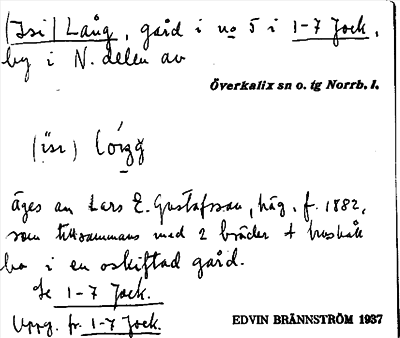 (Isi) Lång, gård i no 5 i 1-7 Jock,
by i N. delen av
Överkalix sn o. tg Norrb. l.
äges av Lars E. Gustafsson, häg. f. 1882,
som tillsammans med 2 bröder +
bo i en oskiftad gård.
Se 1-7 Jock.
Uppg. fr. 1-7 Jock.
EDVIN BRÄNNSTRÖM 1937